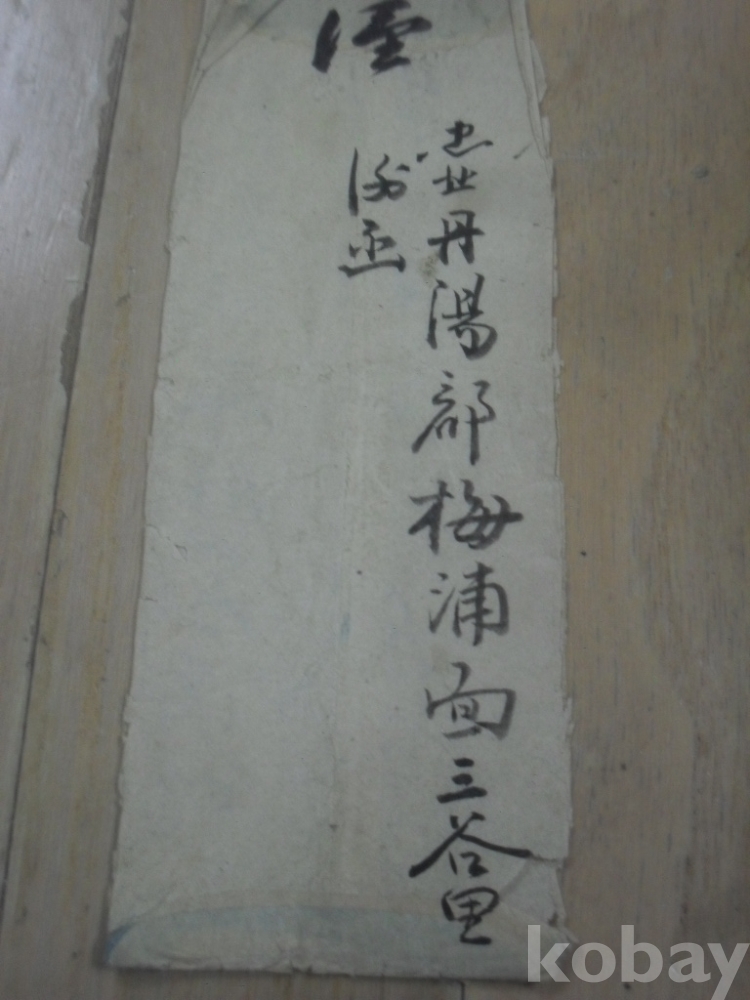 忠北丹陽郡梅浦面三谷里
kobay